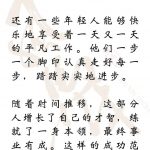 还有一些年轻人能够快
乐地享受着一天又一天
的平凡工作。他们一步
一个脚印认真走好每一
步，踏踏实实地进步。
随着时间推移，这部分
人增长了自己的才智，练
就了一身本领，最终事
业有成。这样的成功范